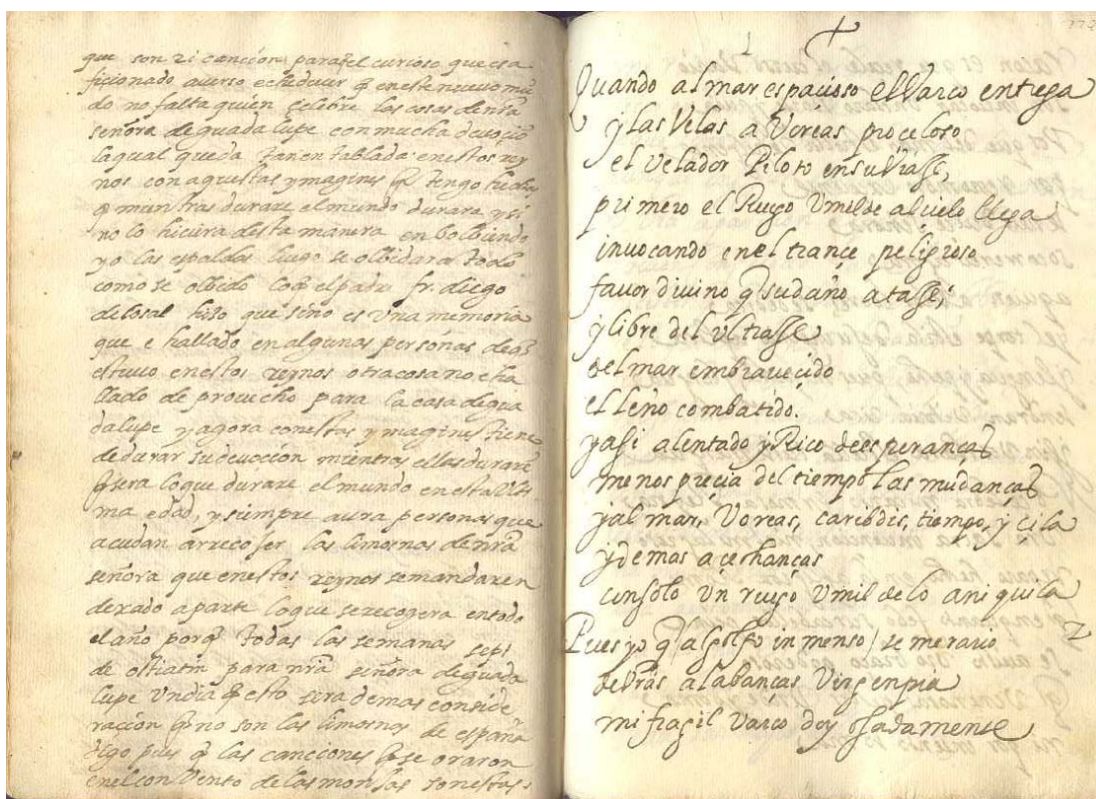 que son 21 cancion para el curioso que es a
ficionado a verso eche de ver q en este nuevo mū
do no falta quien celebre las cosas de nrā
señora de guadalupe con mucha devociō
la qual queda tan entablada en estos rey
nos con aquestas ymagines q̄ tengo hechas
q mientras durare el mundo durara y si
no lo hiciera desta manera en bolbiendo
yo las espaldas luego se olbidara todo
como se olbido lo q el padre fr. diego
de losal hiso que sino es una memoria
que e hallado en algunas personas de q̄
estuvo en estos reynos otra cosa no e ha
llado de provecho para la casa de gua
dalupe y agora con estas ymagines tiene
de durar su devoción mientras ellas durarē
q̄ sera lo que durare el mundo en esta ulti
ma edad, y siempre aura personas que
acudan a rrecoser las limosnas de nrā
señora que en estos reynos se mandaren
dexado aparte lo que se recogera en todo
el año porq̄ todas las semanas
para nrā señora de guada
lupe un dia q̄ esto sera de mas conside
ración q̄ no son las limosnas de españa
digo pues q̄ las canciones q̄ se oraron
en el convento de las monjas son estas
1
Quando al mar espacioso el Varco entrega
y las Velas a Voreas proceloso
el Velador Piloto en su viasse,
primero el Ruego Umilde al cielo llega
invocando en el trance peligroso
favor divino q su daño atasse;
y libre del ultrasse
del mar embravecido
el leño combatido.
y asi alentado y Rico de esperanças
menos precia del tiempo las mudanças
y al mar, Voreas, caribdis, tiempo, y cila
y demas acechanças
con solo un ruego Umilde lo aniquila
Pues yo q al golfo inmenso se me 2
de vrās alabanças Virgen pia
mi fragil varco doy osadamente